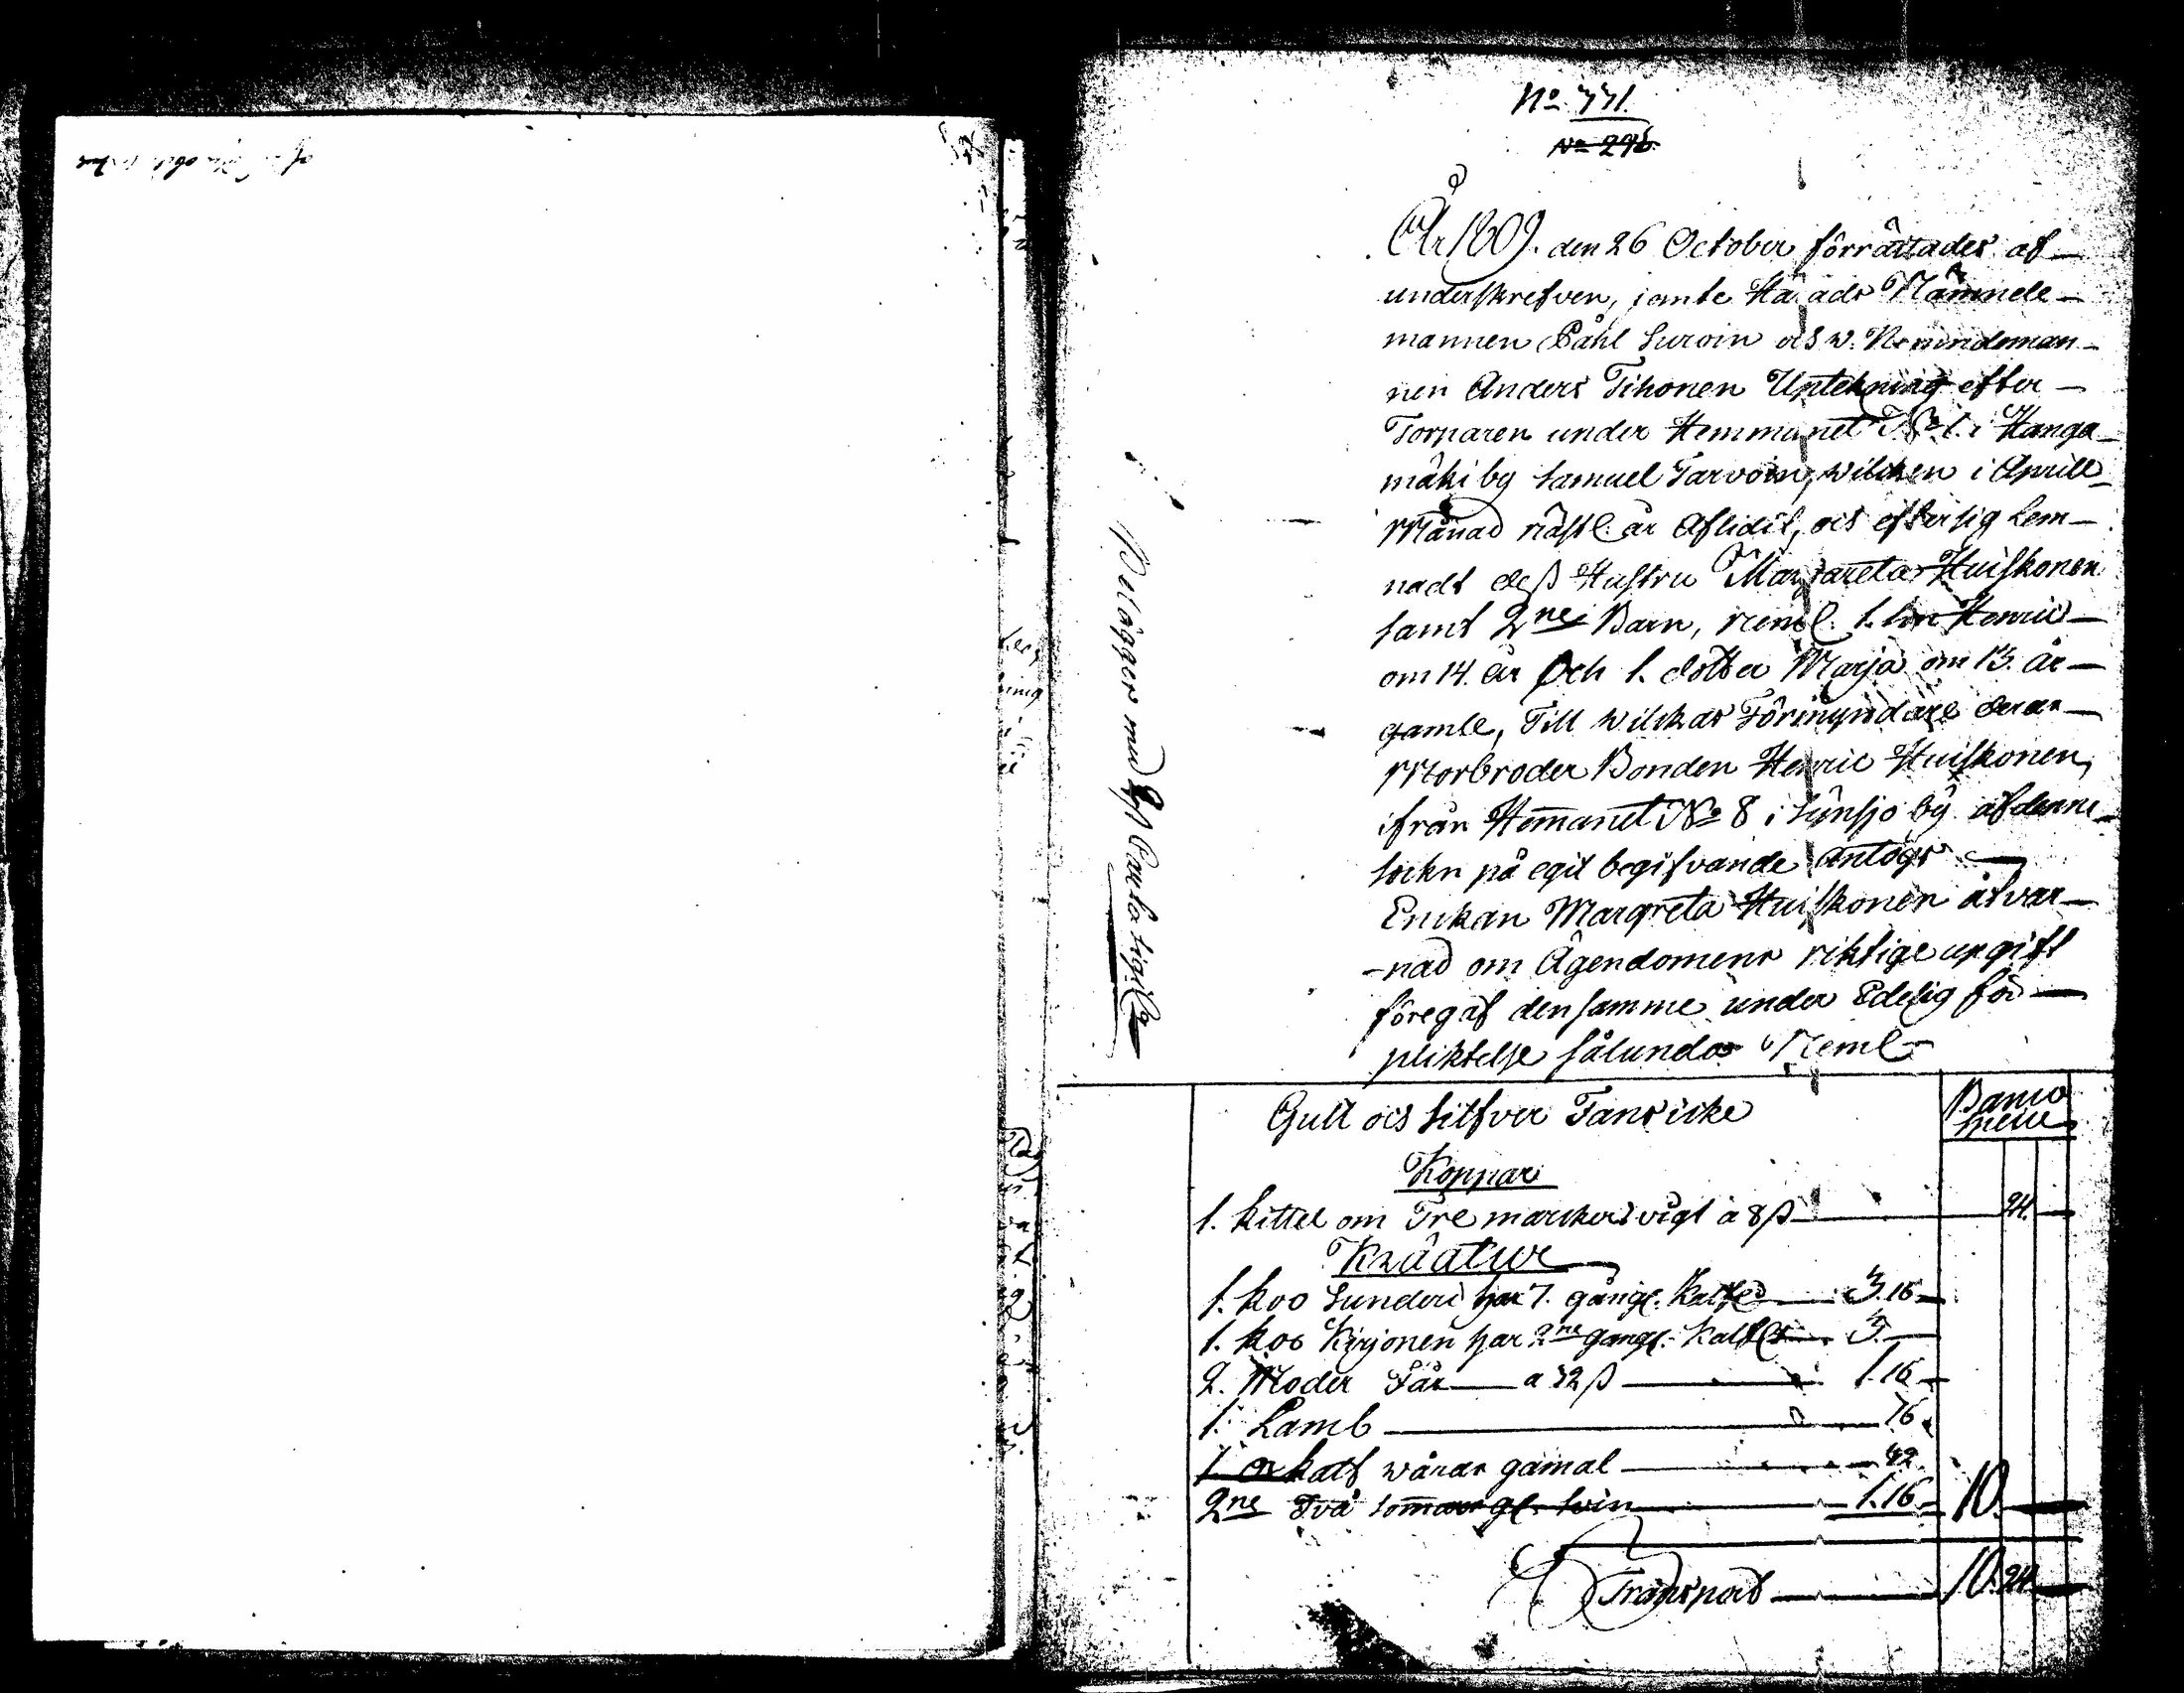 No 771.
No 296.
År 1809. den 26 October förrättades af
underskrefven, jemte Härads Nämnde
mannen Påhl Survin och w. Nemndeman
nen Anders Tihonen Uptekning efter
Torparen under Hemmanet No 1. i Kanga
mäki by Samuel Tarvoin, wilcken i Aprill
Månad näστl. år Aflidit, och efter sig Lem
nadt deß Hustru Margareta Huiskonen
samt 2ne Barn, neml. 1. son Henric
om 14. år Och 1. dotter Marja om 13. år
gamle, Till wilckas Förmyndare deras
Morbroder Bonden Henric Huiskonen,
ifrån Hemanet No 8 i by af denne
Sockn på egit begifvande antogs
Enckan Margreta Huiskonen åtvar
nad om Ägendomens riktige upgift
föregaf densamme under Edelig för
pliktelse sålunda Neml.
Wilögges med Carta Sigill
Gull och Silfver Fans icke
Banco
Koppar
1. Kittel om Tre marckers vigt a 8 ß 24.
Kräatur
1. Koo Sunderi har 7. gångr. Kalfved 3.16
1. Koo Kirjonen har 2ne gångr. Kalfvat 3.
2. Moder Får a 32 ß 1.16
1. Lamb 16
1. Oxkalf wåras gamal 32
2ne Två somar gl. Svin 1.16 10.
Transport 10.24